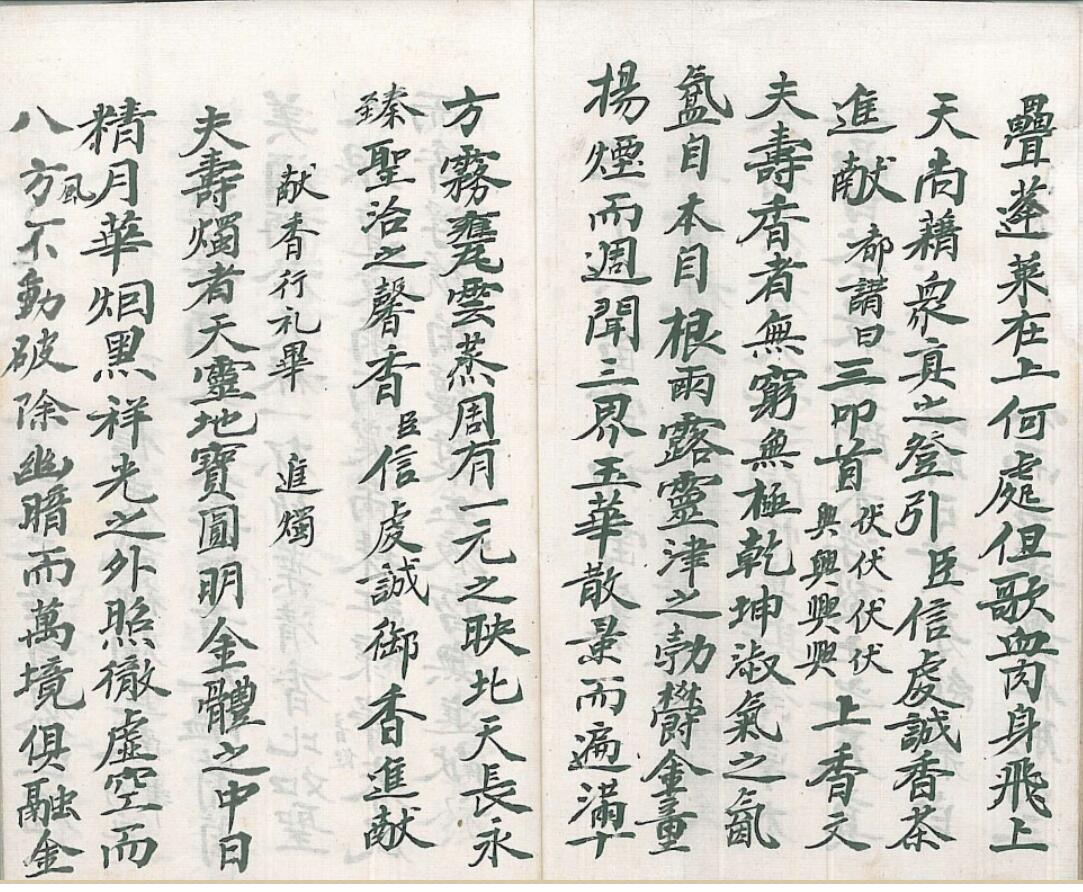 疊蓬萊在上何處但歌身飛上
天尚藉衆真之登引臣信虔誠香茶
進献 都講曰 三叩首 伏伏伏伏 興興興興 上香文
夫壽香者無窮無極乾坤淑氣之氤
氳自本自根雨露靈津之勃欝金童
揚煙而週聞三界玉華散景而遍滿十
方霧甕雲蒸周有一元之映北天長永
臻聖治之馨香臣信虔誠御香進献
献香行礼畢 進燭
夫壽燭者天靈地寶圓明金體之中日
精月華烟黑祥光之外照徹虛空而
八方風不動破除幽暗而萬境俱融金